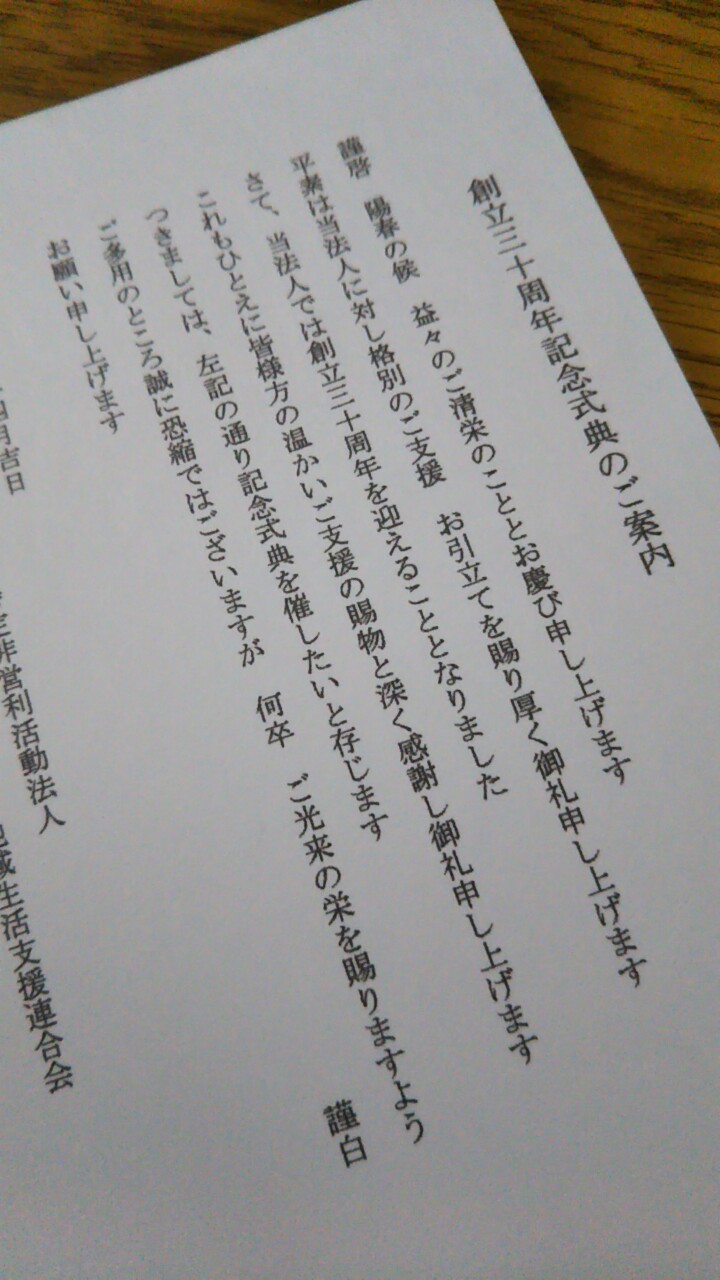 創立三十周年記念式典のご案内
謹啓 陽春の候 益々のご清栄のこととお慶び申し上げます
平素は当法人に対し格別のご支援 お引立てを賜り厚く御礼申し上げます
さて、当法人では創立三十周年を迎えることとなりました
これもひとえに皆様方の温かいご支援の賜物と深く感謝し御礼申し上げます
つきましては、左記の通り記念式典を催したいと存じます
ご多用のところ誠に恐縮ではございますが 何卒 ご光来の栄を賜りますよう
お願い申し上げます
謹白
四月吉日
定非営利活動法人
地域生活支援連合会